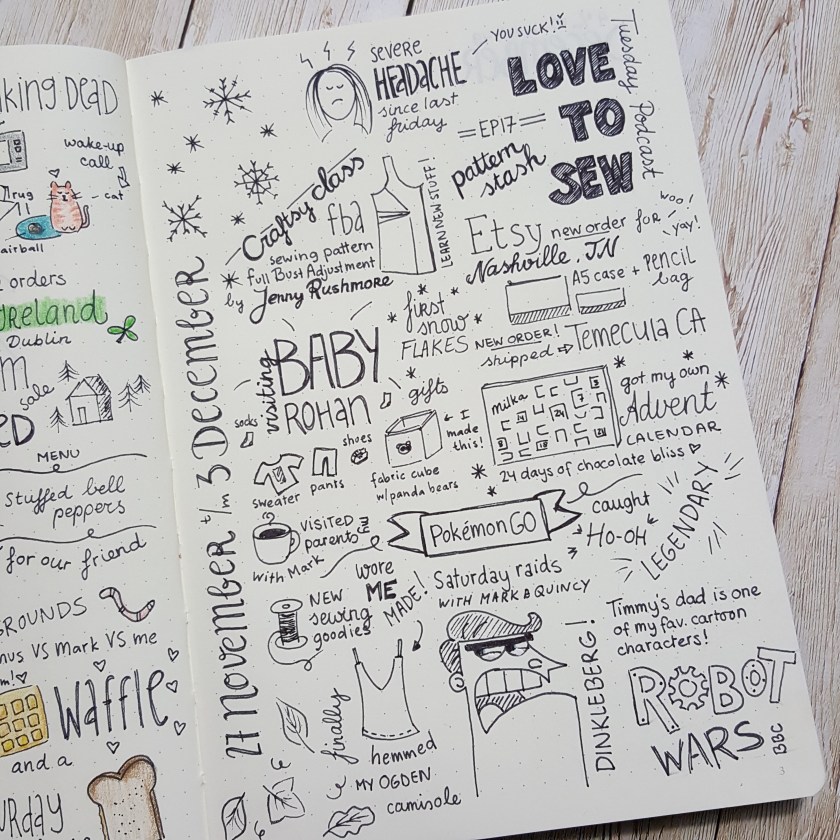 king DeaD
wake-up
call
rug
cat
airball
orders
Ireland
Dublin
m
sale
ED
MENU
Stuffed bell
peppers
for our friend
GROUNDS
nus VS Mark VS me
m!
Waffle
and a
URday
27 November t/m 3 December
severe
HEADACHE
since last
friday
YOU SUCK!
LOVE
TO
SEW
Tuesday Podcast
=EP17=
pattern
stash
Craftsy class
fba
sewing pattern
full Bust Adjustment
by Jenny Rushmore
LEARN NEW STUFF!
Etsy new order for
woo!
yay!
Nashville, TN
A5 case + pencil
bag
first
snow
FLAKES
NEW ORDER!
shipped
Temecula CA
visiting
BABY
Rohan
gifts
socks
shoes
sweater
pants
I
made
this!
fabric cube
w/panda bears
milka
24
7
got my own
Advent
CALENDAR
24 days of chocolate bliss
VISITED
parents
with Mark
Pokémon GO
caught
"Ho-oH"
LEGENDARY
Saturday raids
WITH MARK & QUINCY
wore
ME
MADE!
NEW
sewing
goodies
finally
hemmed
MY OGDEN
camisole
DINKLEBERG!
Timmy's dad is one
of my fav. cartoon
characters!
ROBOT
WARS
BBC
3